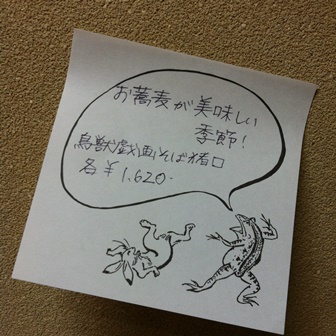 お蕎麦が美味しい
季節!
鳥獣戯画そば猪口
各¥1,620-